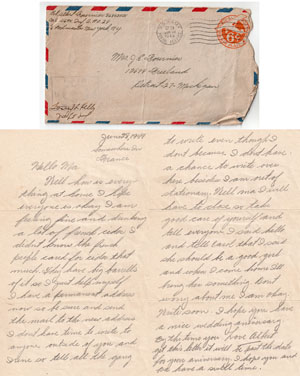 Mrs. J.C. Fournier
18674 Greeland
Detroit 27- Michigan
AIR MAIL
June 28, 1944
Somewhere In
France
Hello Ma
Well how is every
thing at home I hope
everyone is okay I am
feeling fine and drinking
a lot of french cider I
didn't know the french
people cared for cider that
much. They have by barrells
of it so I just help myself
I have a permanent address
now so be sure and send
the mail to the new address
I don't have time to write to
anyone outside of you and
so tell all the gang
to write even though I
don't because I don't have
a chance to write over
here besides I am out of
stationary. Well ma I will
have to close so take
good care of yourself and
tell everyone I said hello
and tell Carol that I said
she should be a good girl
and when I come home I'll
bring her something Don't
worry about me I am okay
Write soon. I hope you have
a nice wedding anniversary
By the time you get this letter it will be past the date
for your anniversary I hope you and
dad have a swell time.